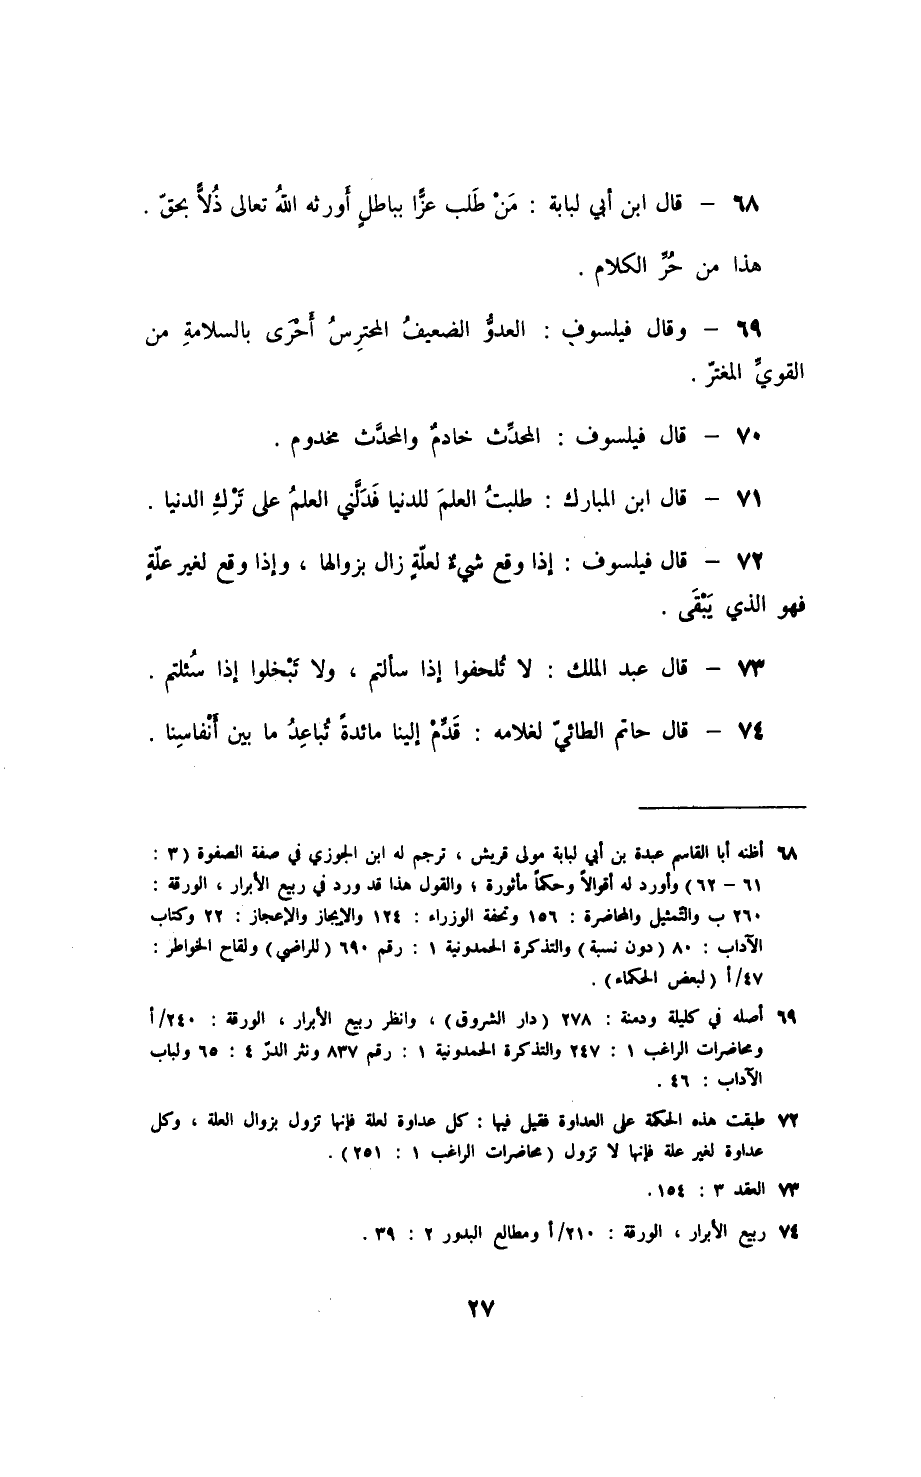 ٦٨ – قال ابن أبي لبابة : مَنْ طَلب عزًّا بباطلٍ أَورثه اللهُ تعالى ذُلاًّ بحقّ .
هذا من حُرِّ الكلام .
٦٩ – وقال فيلسوف : العدوُّ الضعيفُ المحترِسُ أَحْرَى بالسلامةِ من
القويِّ المغترّ .
٧٠ – قال فيلسوف : المحدِّث خادمٌ والمحدَّث مخدوم .
٧١ – قال ابن المبارك : طلبتُ العلمَ للدنيا فَدَلَّني العلمُ على تَرْكِ الدنيا .
٧٢ – قال فيلسوف : إذا وقع شيءٌ لعلّةٍ زال بزوالها ، وإذا وقع لغير علّةٍ
فهو الذي يَبْقَى .
٧٣ – قال عبد الملك : لا تُلحفوا إذا سألتم ، ولا تَبْخلوا إذا سُئلتم .
٧٤ – قال حاتم الطائيّ لغلامه : قَدِّمْ إلينا مائدةً تُباعِدُ ما بين أَنْفاسِنا .
٦٨ أظنه أبا القاسم عبدة بن أبي لبابة مولى قريش ، ترجم له ابن الجوزي في صفة الصفوة (٣ :
٦١ – ٦٢) وأورد له أقوالاً وحكماً مأثورة ؛ والقول هذا قد ورد في ربيع الأبرار ، الورقة :
٢٦٠ ب والتمثيل والمحاضرة : ١٥٦ وتحفة الوزراء : ١٢٤ والإيجاز والإعجاز : ٢٢ وكتاب
الآداب : ٨٠ (دون نسبة) والتذكرة الحمدونية ١ : رقم ٦٩٠ (للراضي) ولقاح الخواطر :
٤٧/أ (لبعض الحكماء) .
٦٩ أصله في كليلة ودمنة : ٢٧٨ (دار الشروق) ، وانظر ربيع الأبرار ، الورقة : ٢٤٠/أ
ومحاضرات الراغب ١ : ٢٤٧ والتذكرة الحمدونية ١ : رقم ٨٣٧ ونثر الدرّ ٤ : ٦٥ ولباب
الآداب : ٤٦ .
٧٢ طبقت هذه الحكمة على العداوة فقيل فيها : كل عداوة لعلة فإنها تزول بزوال العلة ، وكل
عداوة لغير علة فإنها لا تزول (محاضرات الراغب ١ : ٢٥١) .
٧٣ العقد ٣ : ١٥٤ .
٧٤ ربيع الأبرار ، الورقة : ٢١٠/أ ومطالع البدور ٢ : ٣٩ .
٢٧